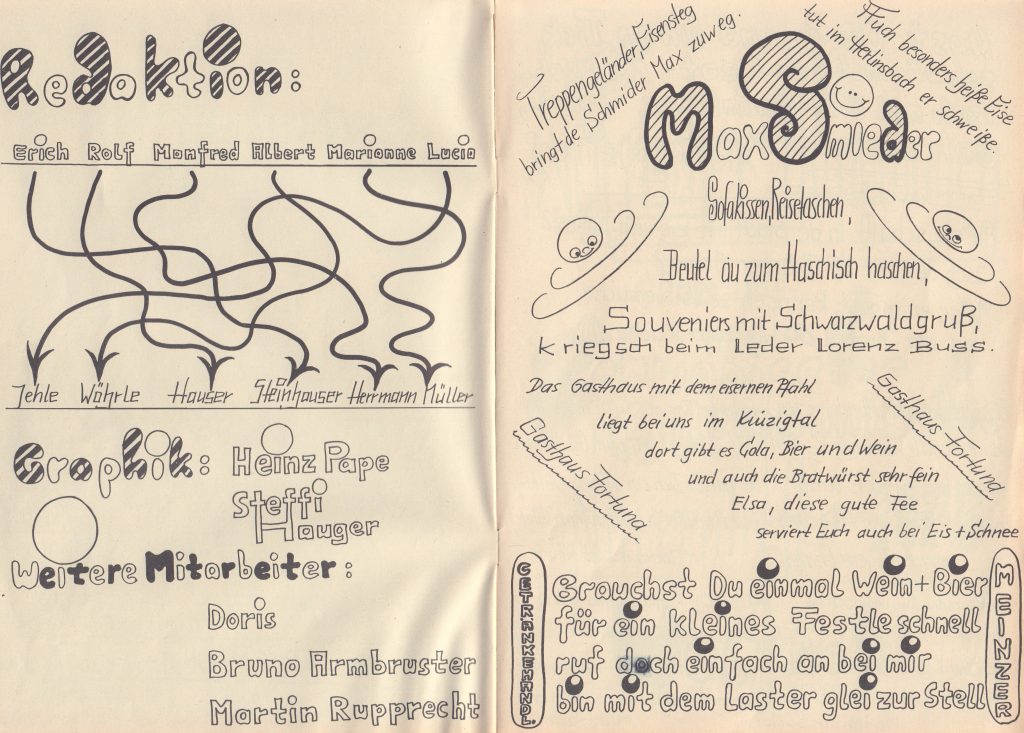 Redaktion:
Erich Rolf Manfred Albert Marianne Lucia
Jehle Wöhrle Hauser Steinhauser Herrmann Müller
Graphik: Heinz Pape
Steffi
Hauger
Weitere Mitarbeiter:
Doris
Bruno Armbruster
Martin Rupprecht
Treppengeländer, Eisensteg
bringt de Schmider Max zuweg.
Auch besonders heiße Eise
tut im Herlinsbach er schweiße.
Max Smieder
Sofakissen, Reisetaschen,
Beutel au zum Haschisch haschen,
Souveniers mit Schwarzwaldgruß,
kriegsch beim Leder Lorenz Buss.
Das Gasthaus mit dem eisernen Pfahl
liegt bei uns im Kinzigtal
dort gibt es Cola, Bier und Wein
und auch die Bratwürst sehr fein
Elsa, diese gute Fee
serviert Euch auch bei Eis + Schnee
Gasthaus Fortuna
Gasthaus Fortuna
GETRÄNKEHANDL.
Brauchst Du einmal Wein + Bier
für ein kleines Festle schnell
ruf doch einfach an bei mir
bin mit dem Laster glei zur Stell
MEINZER